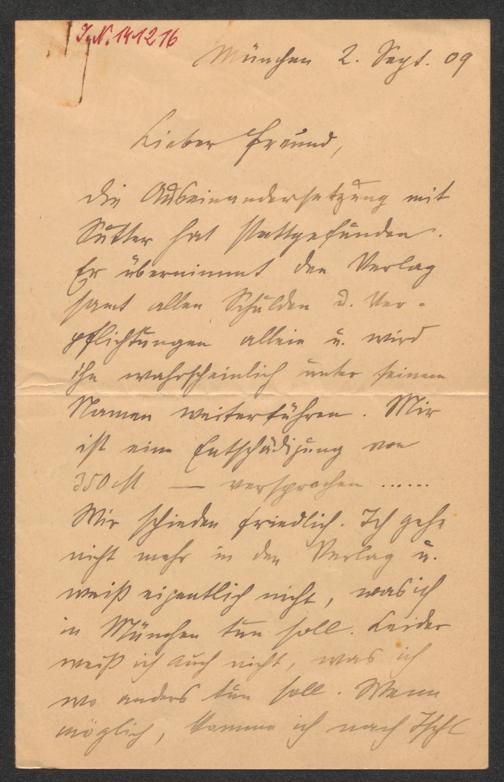 I.N. 141216
München 2. Sept. 09
Lieber Freund,
die Auseinandersetzung mit
Sutter hat stattgefunden.
Er übernimmt den Verlag
samt allen Schulden u. Ver-
pflichtungen allein u. wird
ihn wahrscheinlich unter seinem
Namen weiterführen. Mir
ist eine Entschädigung von
350 M — versprochen ......
Wir schieden friedlich. Ich gehe
nicht mehr in den Verlag u.
weiß eigentlich nicht, was ich
in München tun soll. Leider
weiß ich auch nicht, was ich
wo anders tun soll. Wenn
möglich, komme ich nach Ischl